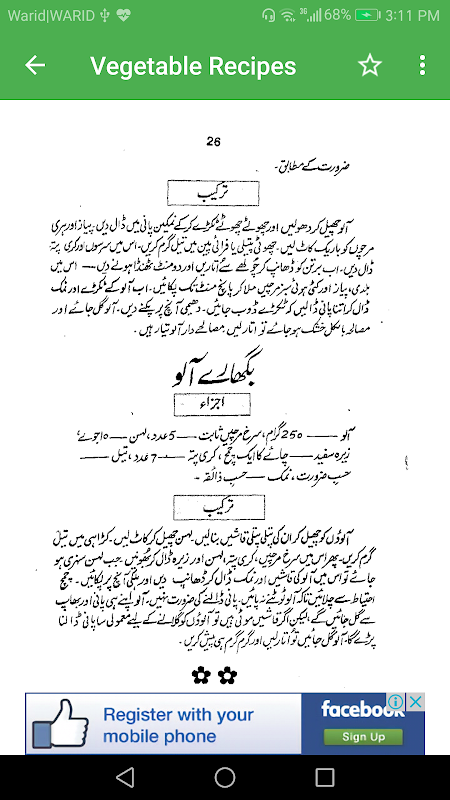 Warid|WARID 3G 68% 3:11 PM
Vegetable Recipes
26
ضرورت کے مطابق۔
ترکیب
آلو چھیل کر دھولیں اور چھوٹے چھوٹے ٹکڑے کرکے نمکین پانی میں ڈال دیں۔ پیاز اور ہری
مرچوں کو باریک کاٹ لیں۔ چھوٹی پتیلی یا فرائی پین میں تیل گرم کریں۔ اس میں سرسوں اور کری پتہ
ڈال دیں۔ اب برتن کو ڈھانپ کر چولھے سے اتاریں اور دو منٹ ٹھنڈا ہونے دیں — اس میں
ہلدی، پیاز اور کٹی ہوئی سبز مرچیں ملا کر پانچ منٹ تک پکائیں۔ اب آلو کے ٹکڑے اور نمک
ڈال کر اتنا پانی ڈالیں کہ ٹکڑے ڈوب جائیں۔ دھیمی آنچ پر پکنے دیں۔ آلو گل جائے اور
مصالحہ بالکل خشک ہو جائے تو اتار لیں۔ مصالحے دار آلو تیار ہیں۔
بگھارے آلو
اجزاء
آلو — 250 گرام، سرخ مرچیں ثابت — 5 عدد، لہسن — 10 جوئے،
زیرہ سفید — چائے کا ایک چمچ، کری پتہ — 7 عدد، تیل —
حسب ضرورت، نمک — حسب ذائقہ۔
ترکیب
آلوؤں کو چھیل کر ان کی پتلی پتلی قاشیں بنالیں۔ لہسن چھیل کر کاٹ لیں۔ کڑاہی میں تیل
گرم کریں۔ پھر اس میں سرخ مرچیں، کری پتہ، لہسن اور زیرہ ڈال کر بھونیں۔ جب لہسن سنہری ہو
جائے تو اس میں آلو کی قاشیں اور نمک ڈال کر ڈھانپ دیں اور ہلکی آنچ پر پکائیں۔ چمچ
احتیاط سے چلائیں تاکہ آلو ٹوٹنے نہ پائیں۔ پانی ڈالنے کی ضرورت نہیں۔ آلو اپنے ہی پانی اور بھاپ
سے گل جائیں گے، لیکن اگر قاشیں موٹی ہیں تو آلوؤں کو گلانے کے لیے معمولی سا پانی ڈالنا
پڑے گا۔ آلو گل جائیں تو اتار لیں اور گرم گرم ہی پیش کریں۔
Register with your
mobile phone
facebook
Sign Up